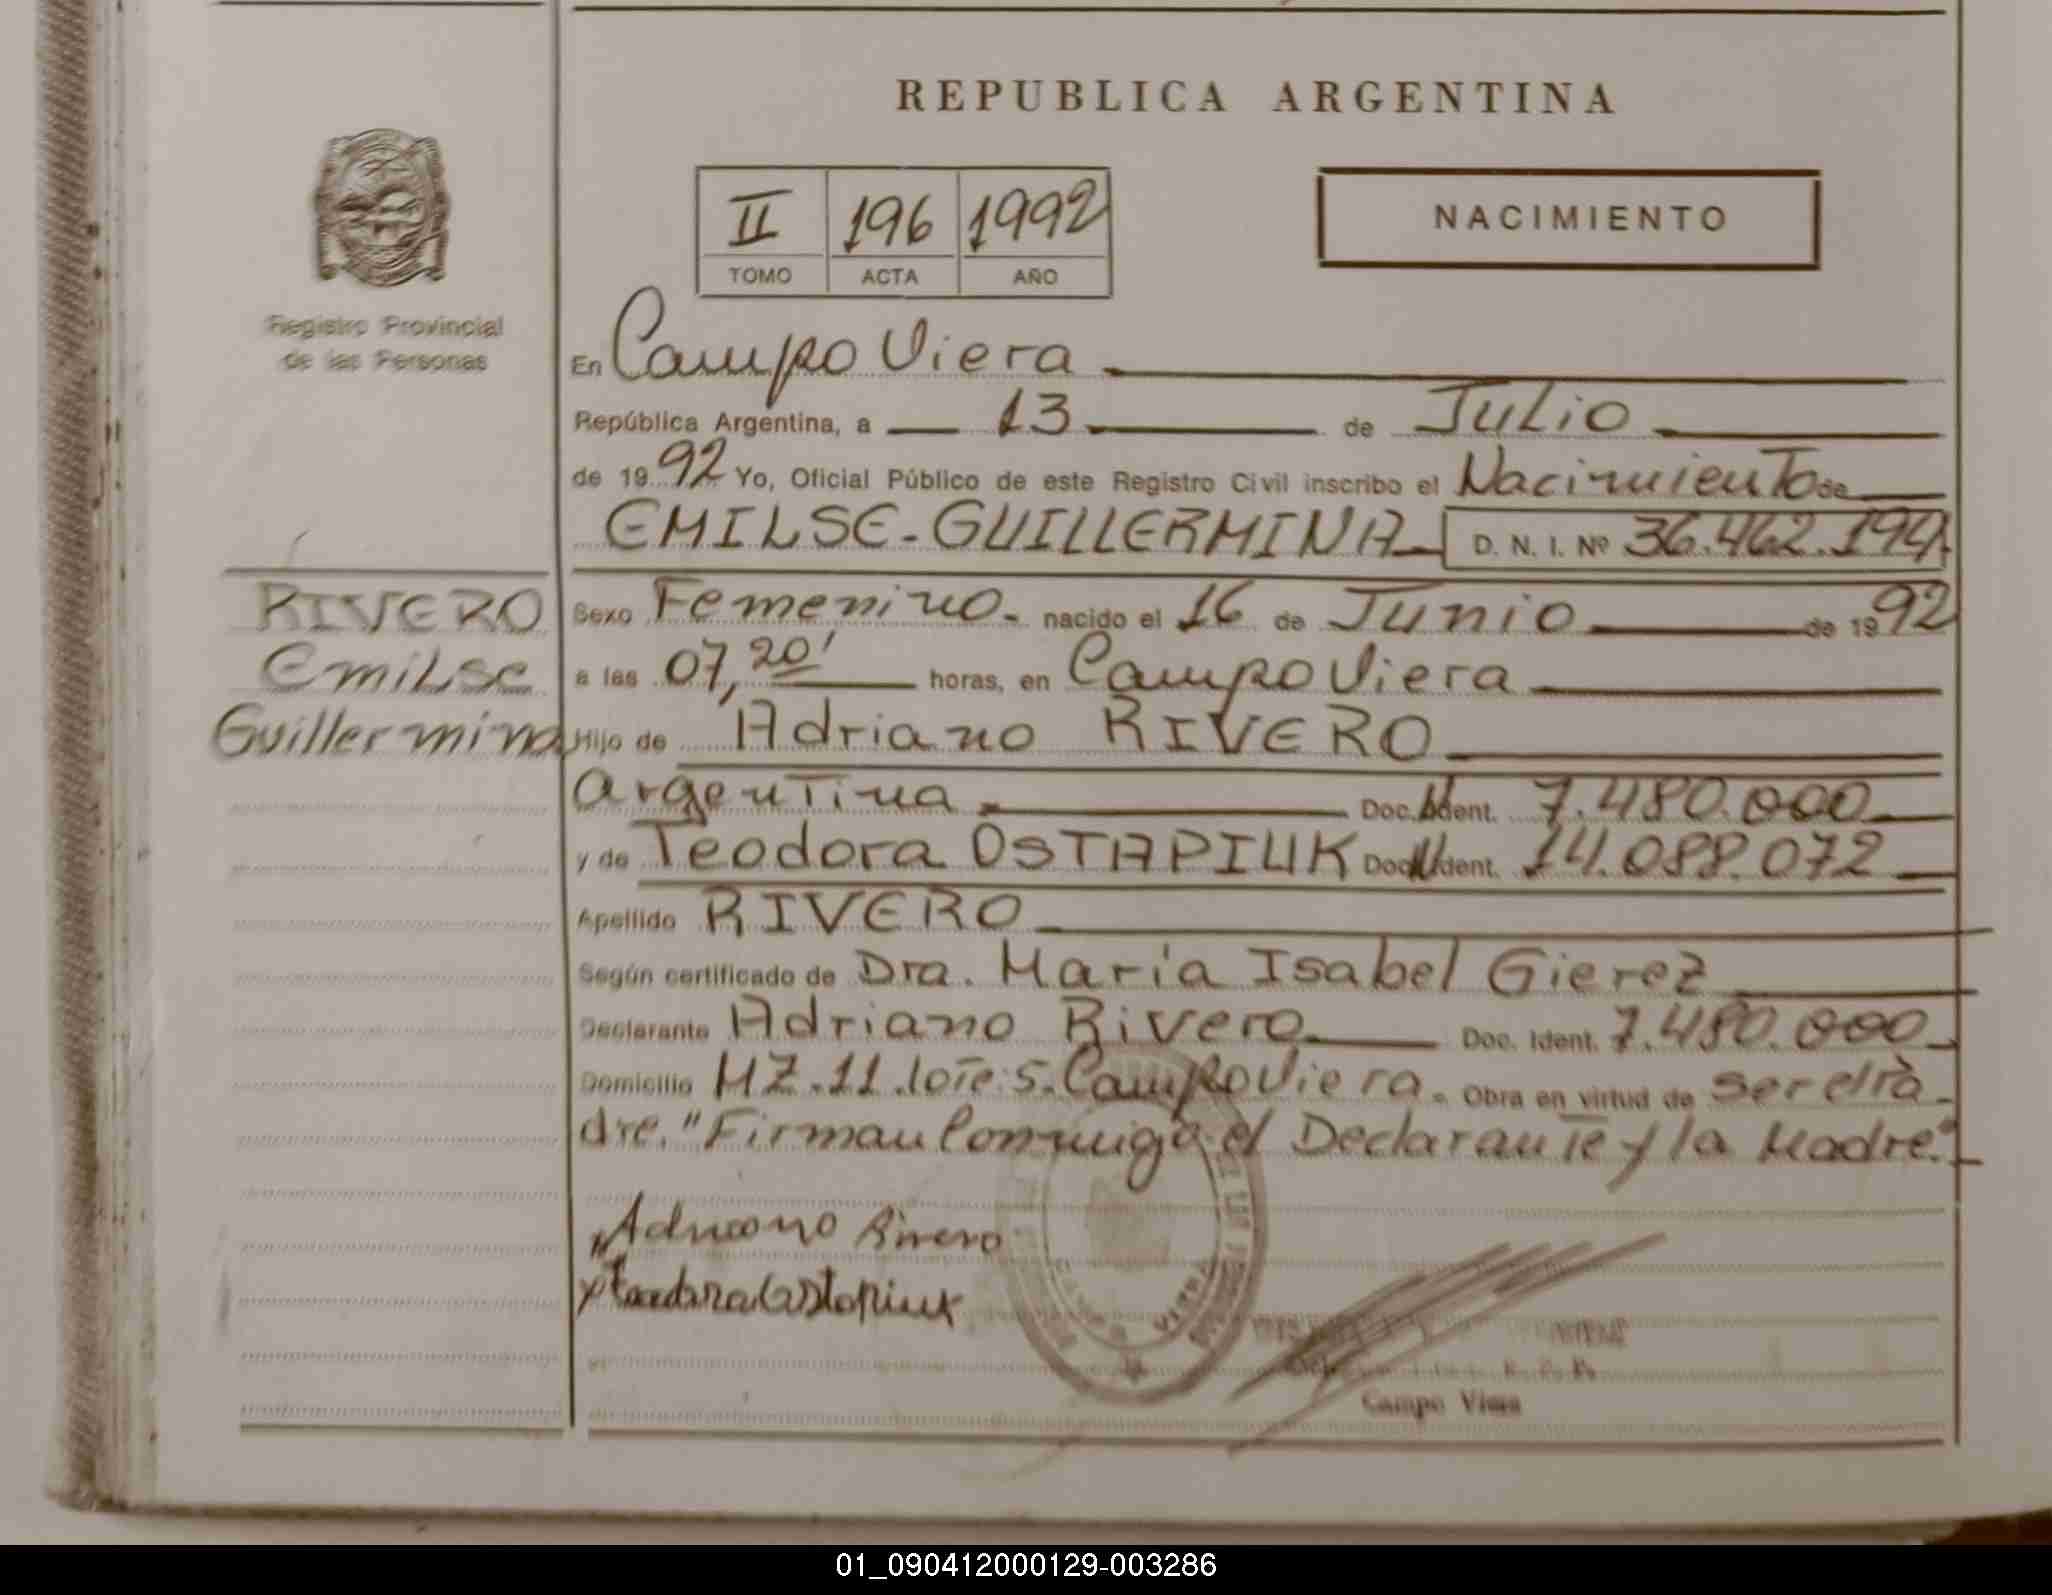 REPUBLICA ARGENTINA
II 196 1992
TOMO ACTA AÑO
NACIMIENTO
Registro Provincial
de las Personas
En Campo Viera
República Argentina, a 13 de Julio
de 1992 Yo, Oficial Público de este Registro Civil inscribo el Nacimiento de
EMILSE-GUILLERMINA D. N. I. Nº 36.462.194
RIVERO
Emilse
Guillermina
Sexo Femenino. nacido el 16 de Junio de 1992
a las 07,20' horas, en Campo Viera
Hijo de Adriano RIVERO
Argentina Doc. Ident. 7.480.000
y de Teodora OSTAPIUK Doc. Ident. 14.088.072
Apellido RIVERO
Según certificado de Dra. María Isabel Gierez
Declarante Adriano Rivero Doc. Ident. 7.480.000
Domicilio MZ.11.lote:5.Campo Viera. Obra en virtud de ser el Pa-
dre. "Firman Conmigo el Declarante y la Madre."
Adriano Rivero
Teodora Ostapiuk
Campo Viera
01_090412000129-003286